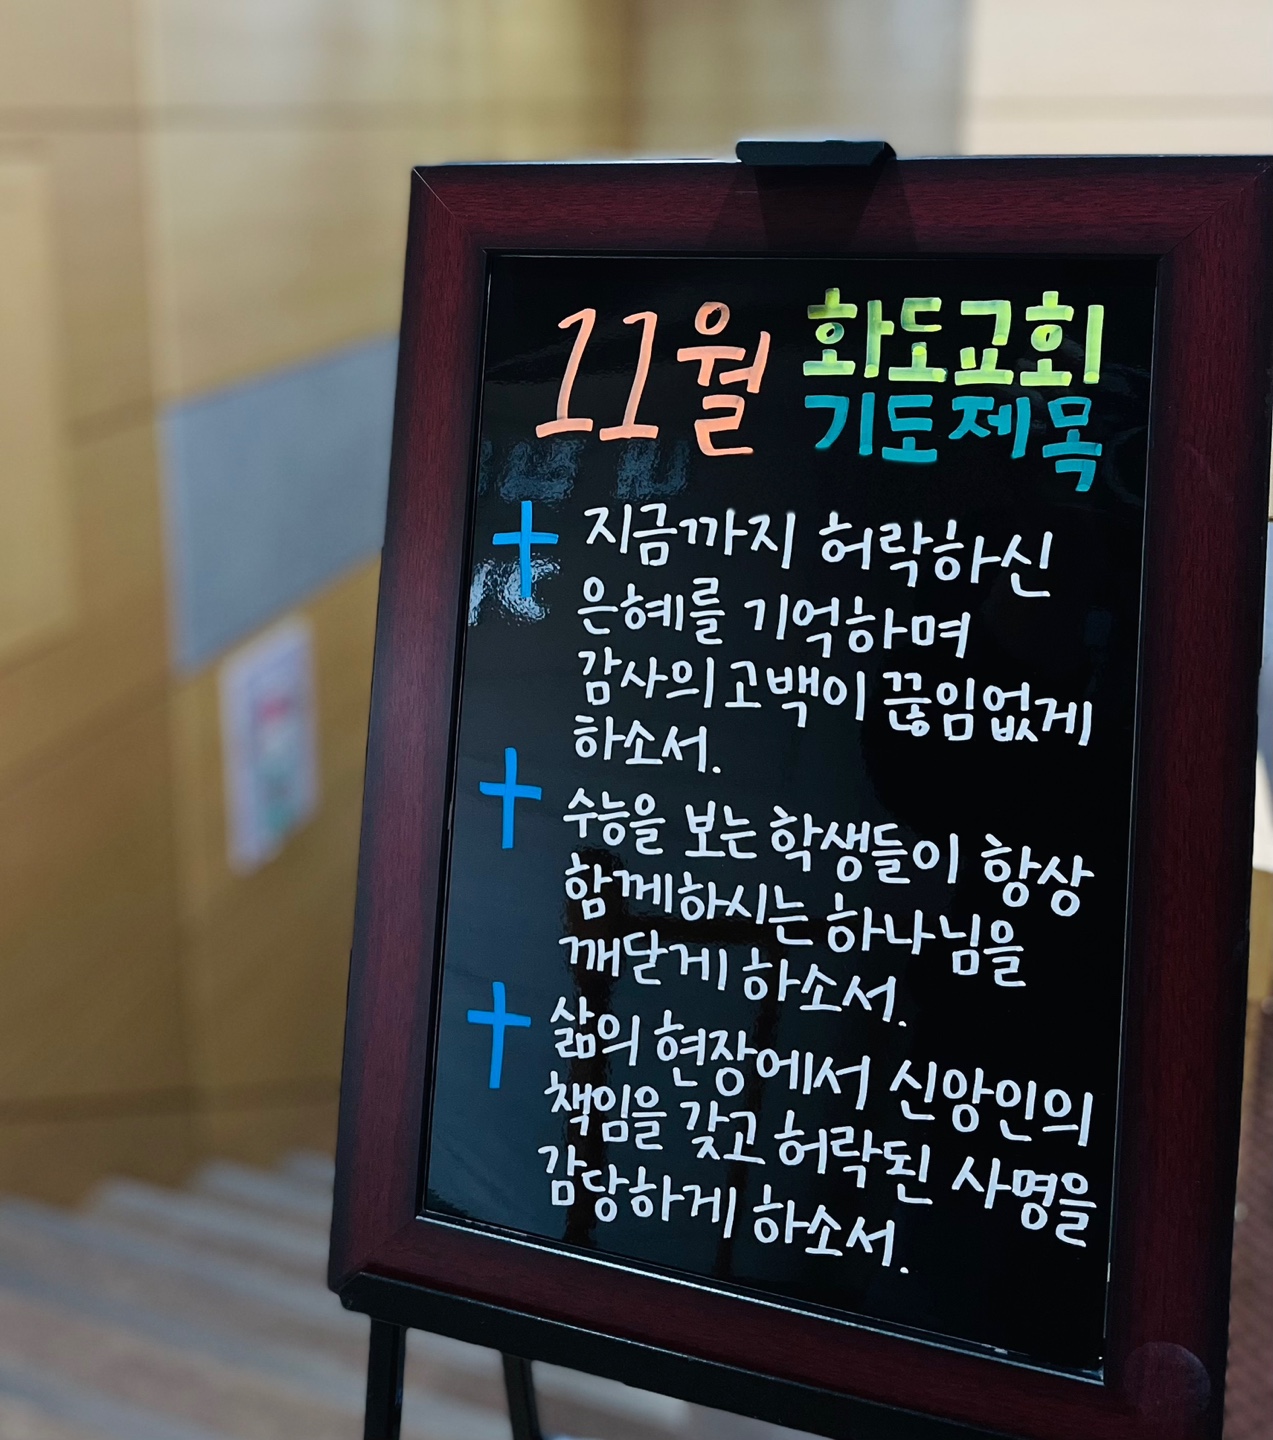 11월 화도교회
기도제목
✝ 지금까지 허락하신
은혜를 기억하며
감사의 고백이 끊임없게
하소서.
✝ 수능을 보는 학생들이 항상
함께하시는 하나님을
깨닫게 하소서.
✝ 삶의 현장에서 신앙인의
책임을 갖고 허락된 사명을
감당하게 하소서.